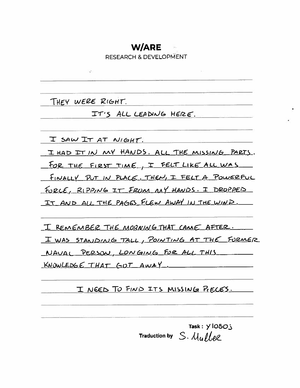 W/ARE
RESEARCH & DEVELOPMENT
THEY WERE RIGHT.
IT'S ALL LEADING HERE.
I SAW IT AT NIGHT.
I HAD IT IN MY HANDS. ALL THE MISSING PARTS.
FOR THE FIRST TIME, I FELT LIKE ALL WAS
FINALLY PUT IN PLACE. THEN, I FELT A POWERFUL
FORCE, RIPPING IT FROM MY HANDS. I DROPPED
IT AND ALL THE PAGES FLEW AWAY IN THE WIND.
I REMEMBER THE MORNING THAT CAME AFTER.
I WAS STANDING TALL, POINTING AT THE FORMER
NAVAL PERSON, LONGING FOR ALL THIS
KNOWLEDGE THAT GOT AWAY.
I NEED TO FIND ITS MISSING PIECES.
Task:
Traduction by S. Muller